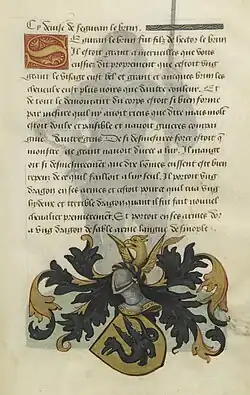 Cy devise de seguran le brun.
Seguran le brun fut filz de hector le brun
Il estoit grant a merveilles que vous
eussiez dit proprement que cestoit ung
geant le visaige eust bel et grant et auques brun les
cheveulx eust plus noirs que autre couleur. Et
de tout le demourant du corps estoit si bien forme
par mesure quil ny avoit riens que dire mais moult
estoit doulx et paisible et navoit gueres compai
gnie
force estoit que
navoit duree a luy. Il mangeoit
si que dix hommes eussent este bien
repeuz de ce quil failloit a luy seul. Il portoit ung
dragon en ses armes et cestoit pource quil tua ung
hydeux et terrible dragon quant il fut fait nouvel
chevalier premierement. Et portoit en ses armes dor
a ung dragon de sable arme langue de sinople